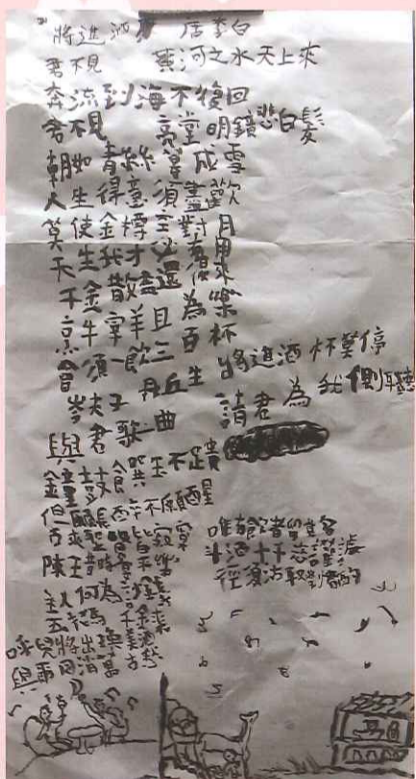 將進酒 唐 李白
君不見 黃河之水天上來
奔流到海不復回
君不見 高堂明鏡悲白髮
朝如青絲暮成雪
人生得意須盡歡
莫使金樽空對月
天生我才必有用
千金散盡還復來
烹牛宰羊且為樂
會須一飲三百杯
岑夫子丹丘生 將進酒杯莫停
與君歌一曲 請君為我側耳聽
鐘鼓饌玉不足貴
但願長醉不願醒
皆寂寞 唯有飲者留其名
陳王昔時宴 斗酒十千恣歡謔
主人何為言少錢 徑須沽取對君酌
五花馬千金裘
呼兒將出換美酒
與爾同消萬古愁